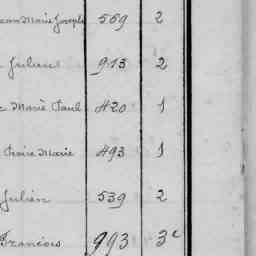 Marie Joseph 569 2
Julien 913 2
Marie Paul 420 1
Pierre Marie 493 1
Julien 539 2
François 993 3e